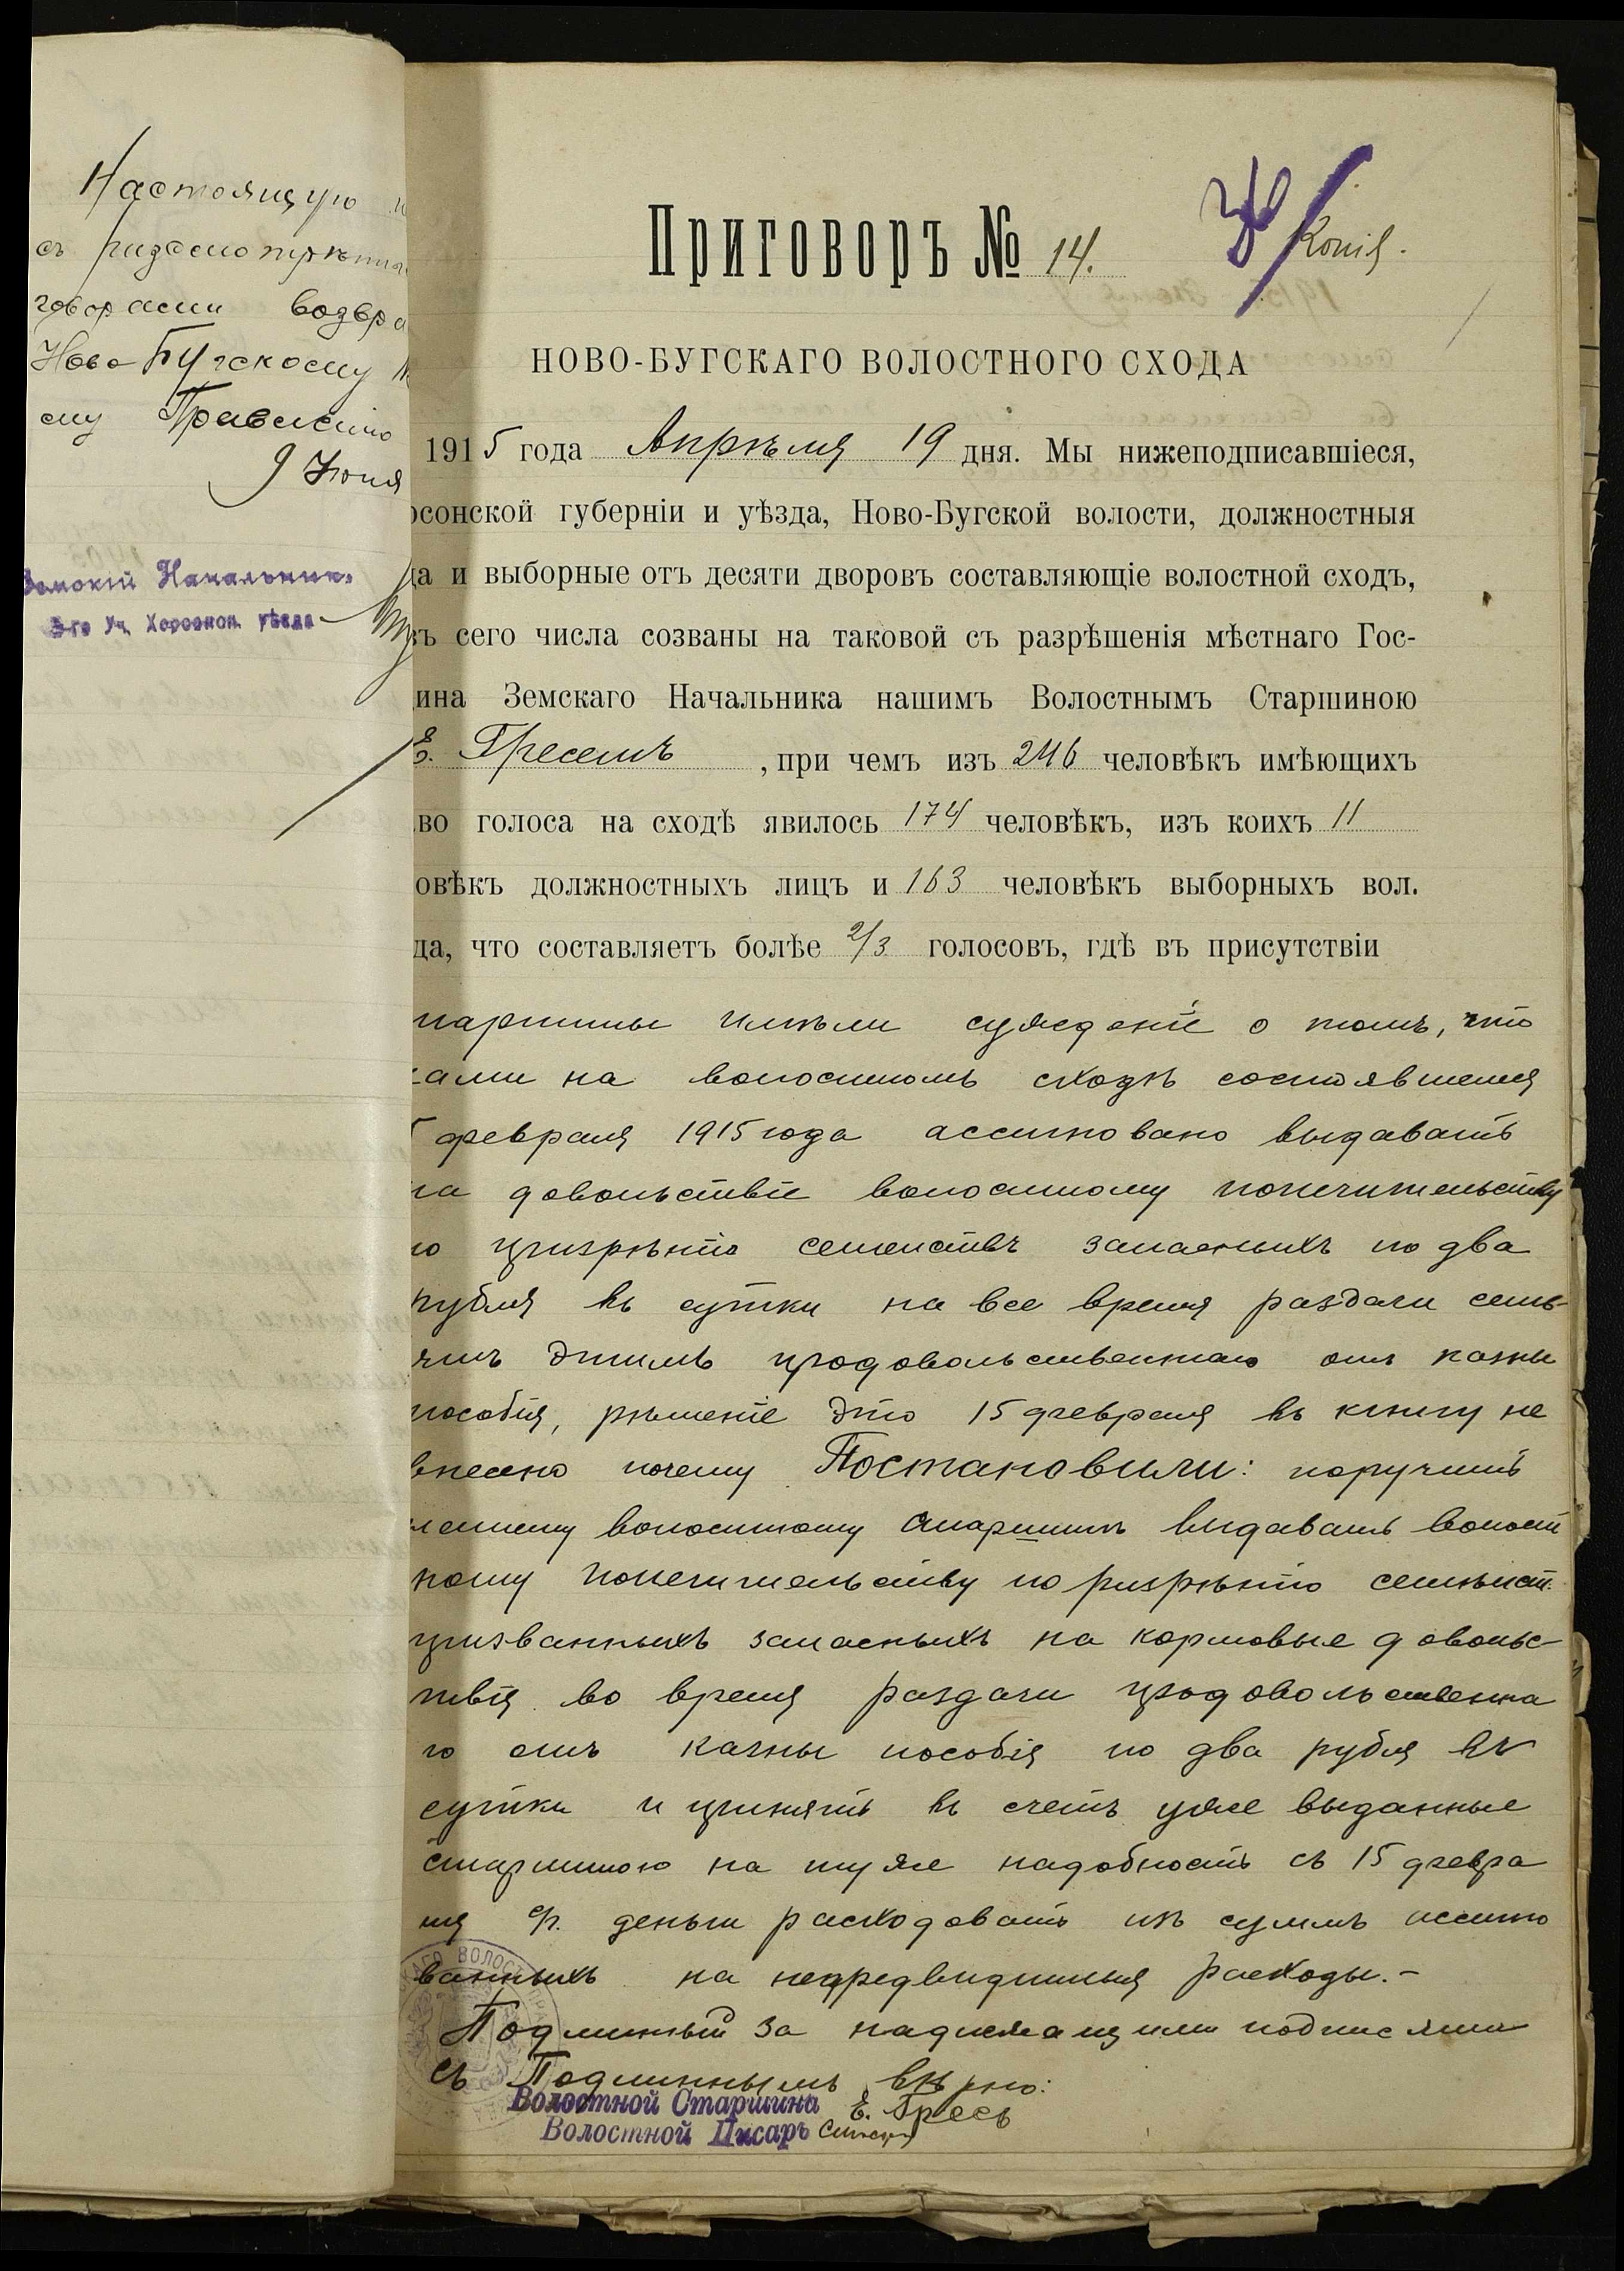 Настоящую
съ
говорами возвра
Ново Бугскому
ому Правленію
9 Іюня
Земскій Начальникъ
3-го Уч. Херсонск. уѣзда
Приговоръ № 14.
Копія.
НОВО-БУГСКАГО ВОЛОСТНОГО СХОДА
1915 года Апрѣля 19 дня. Мы нижеподписавшіеся,
рсонской губерніи и уѣзда, Ново-Бугской волости, должностныя
ца и выборные отъ десяти дворовъ составляющіе волостной сходъ,
въ сего числа созваны на таковой съ разрѣшенія мѣстнаго Гос-
дина Земскаго Начальника нашимъ Волостнымъ Старшиною
Е. Гресемъ, при чемъ изъ 246 человѣкъ имѣющихъ
во голоса на сходѣ явилось 174 человѣкъ, изъ коихъ 11
овѣкъ должностныхъ лицъ и 163 человѣкъ выборныхъ вол.
да, что составляетъ болѣе 2/3 голосовъ, гдѣ въ присутствіи
таршины имѣли сужденіе о томъ, что
нами на волостномъ сходѣ состоявшемся
5 февраля 1915 года ассигновано выдавать
на довольствіе волостному попечительству
по призрѣнію семействъ запасныхъ по два
рубля въ сутки на все время раздачи семь-
ямъ этимъ продовольственнаго отъ казны
пособія, рѣшеніе это 15 февраля въ книгу не
внесено почему Постановили: поручить
нашему волостному Старшинѣ выдавать волост
ному попечительству по ризрѣнію семейст.
призванныхъ запасныхъ на кормовые довольс-
твія во время раздачи продовольственна
го отъ казны пособія по два рубля въ
сутки и принять въ счетъ уже выданные
старшиною на туже надобность съ 15 февра
ля ср. деньги расходовать изъ суммъ ассигно
ванныхъ на непредвидимыя расходы.-
Подлинный за надлежащими подписями
Съ Подлиннымъ вѣрно:
Волостной Старшина Е. Гресь
Волостной Писарь